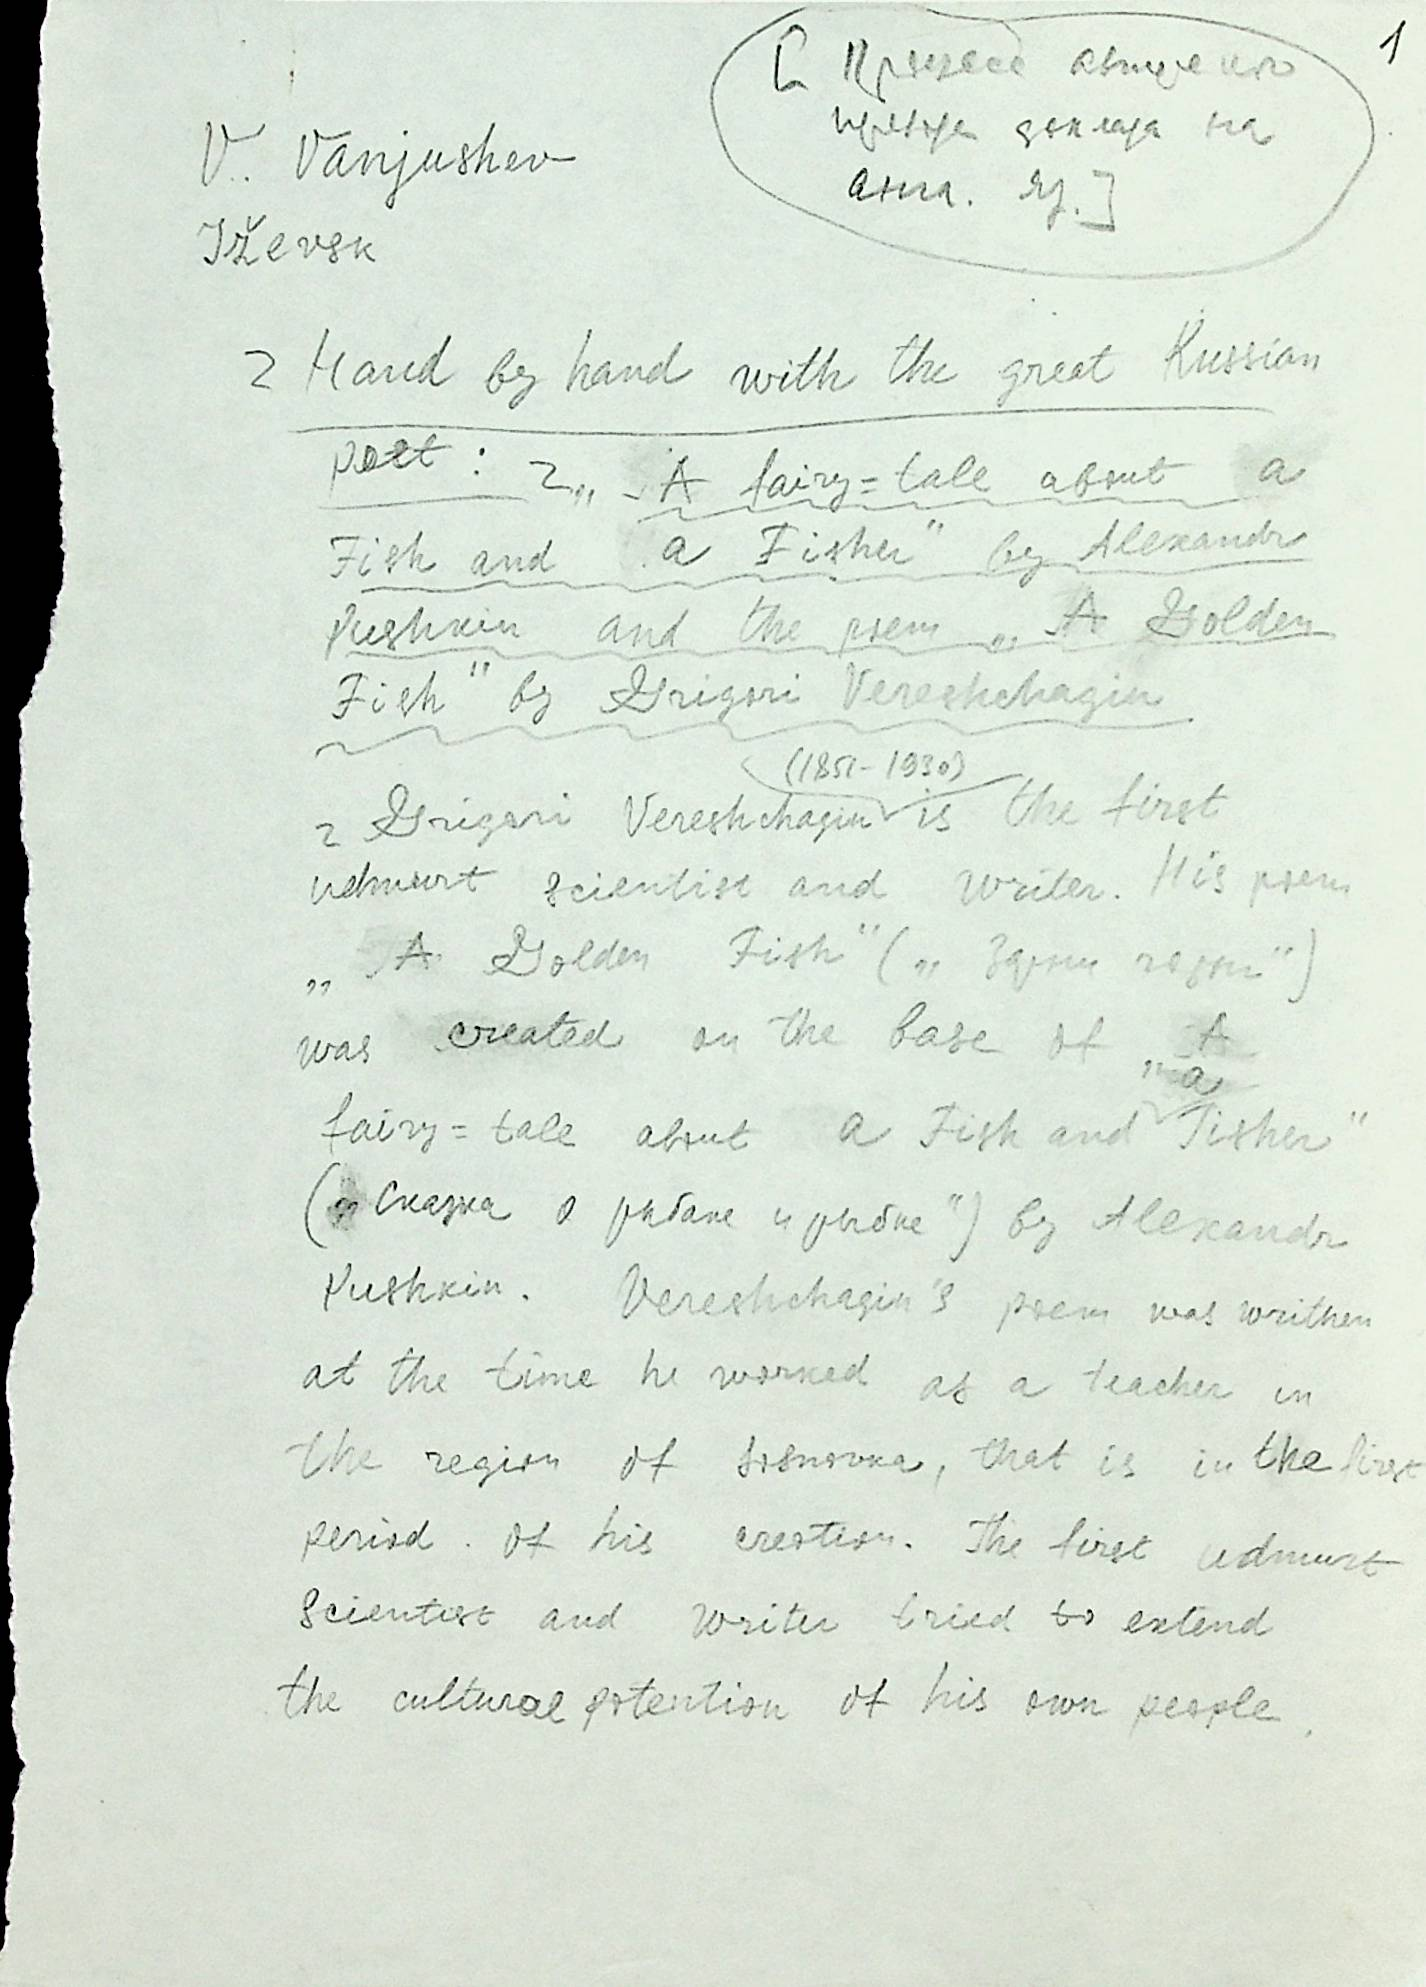 1
[ Процесс авторского
перевода доклада на
англ. яз. ]
V. Vanjushev
Iževsk
Hand by hand with the great Russian
poet : „ A fairy=tale about a
Fish and a Fisher" by Alexandr
Pushkin and the poem „ A Golden
Fish" by Grigori Vereshchagin
(1851-1930)
Grigori Vereshchagin is the first
udmurt scientist and writer. His poem
„ A Golden Fish" („ Зарни чорыг")
was created on the base of „ A
a
fairy=tale about a Fish and Fisher"
(„ Сказка о рыбаке и рыбке") by Alexandr
Pushkin. Vereshchagin's poem was writhen
at the time he worked as a teacher in
the region of Sosnovka, that is in the first
period of his creation. The first udmurt
scientist and writer tried to extend
the cultural potention of his own people.